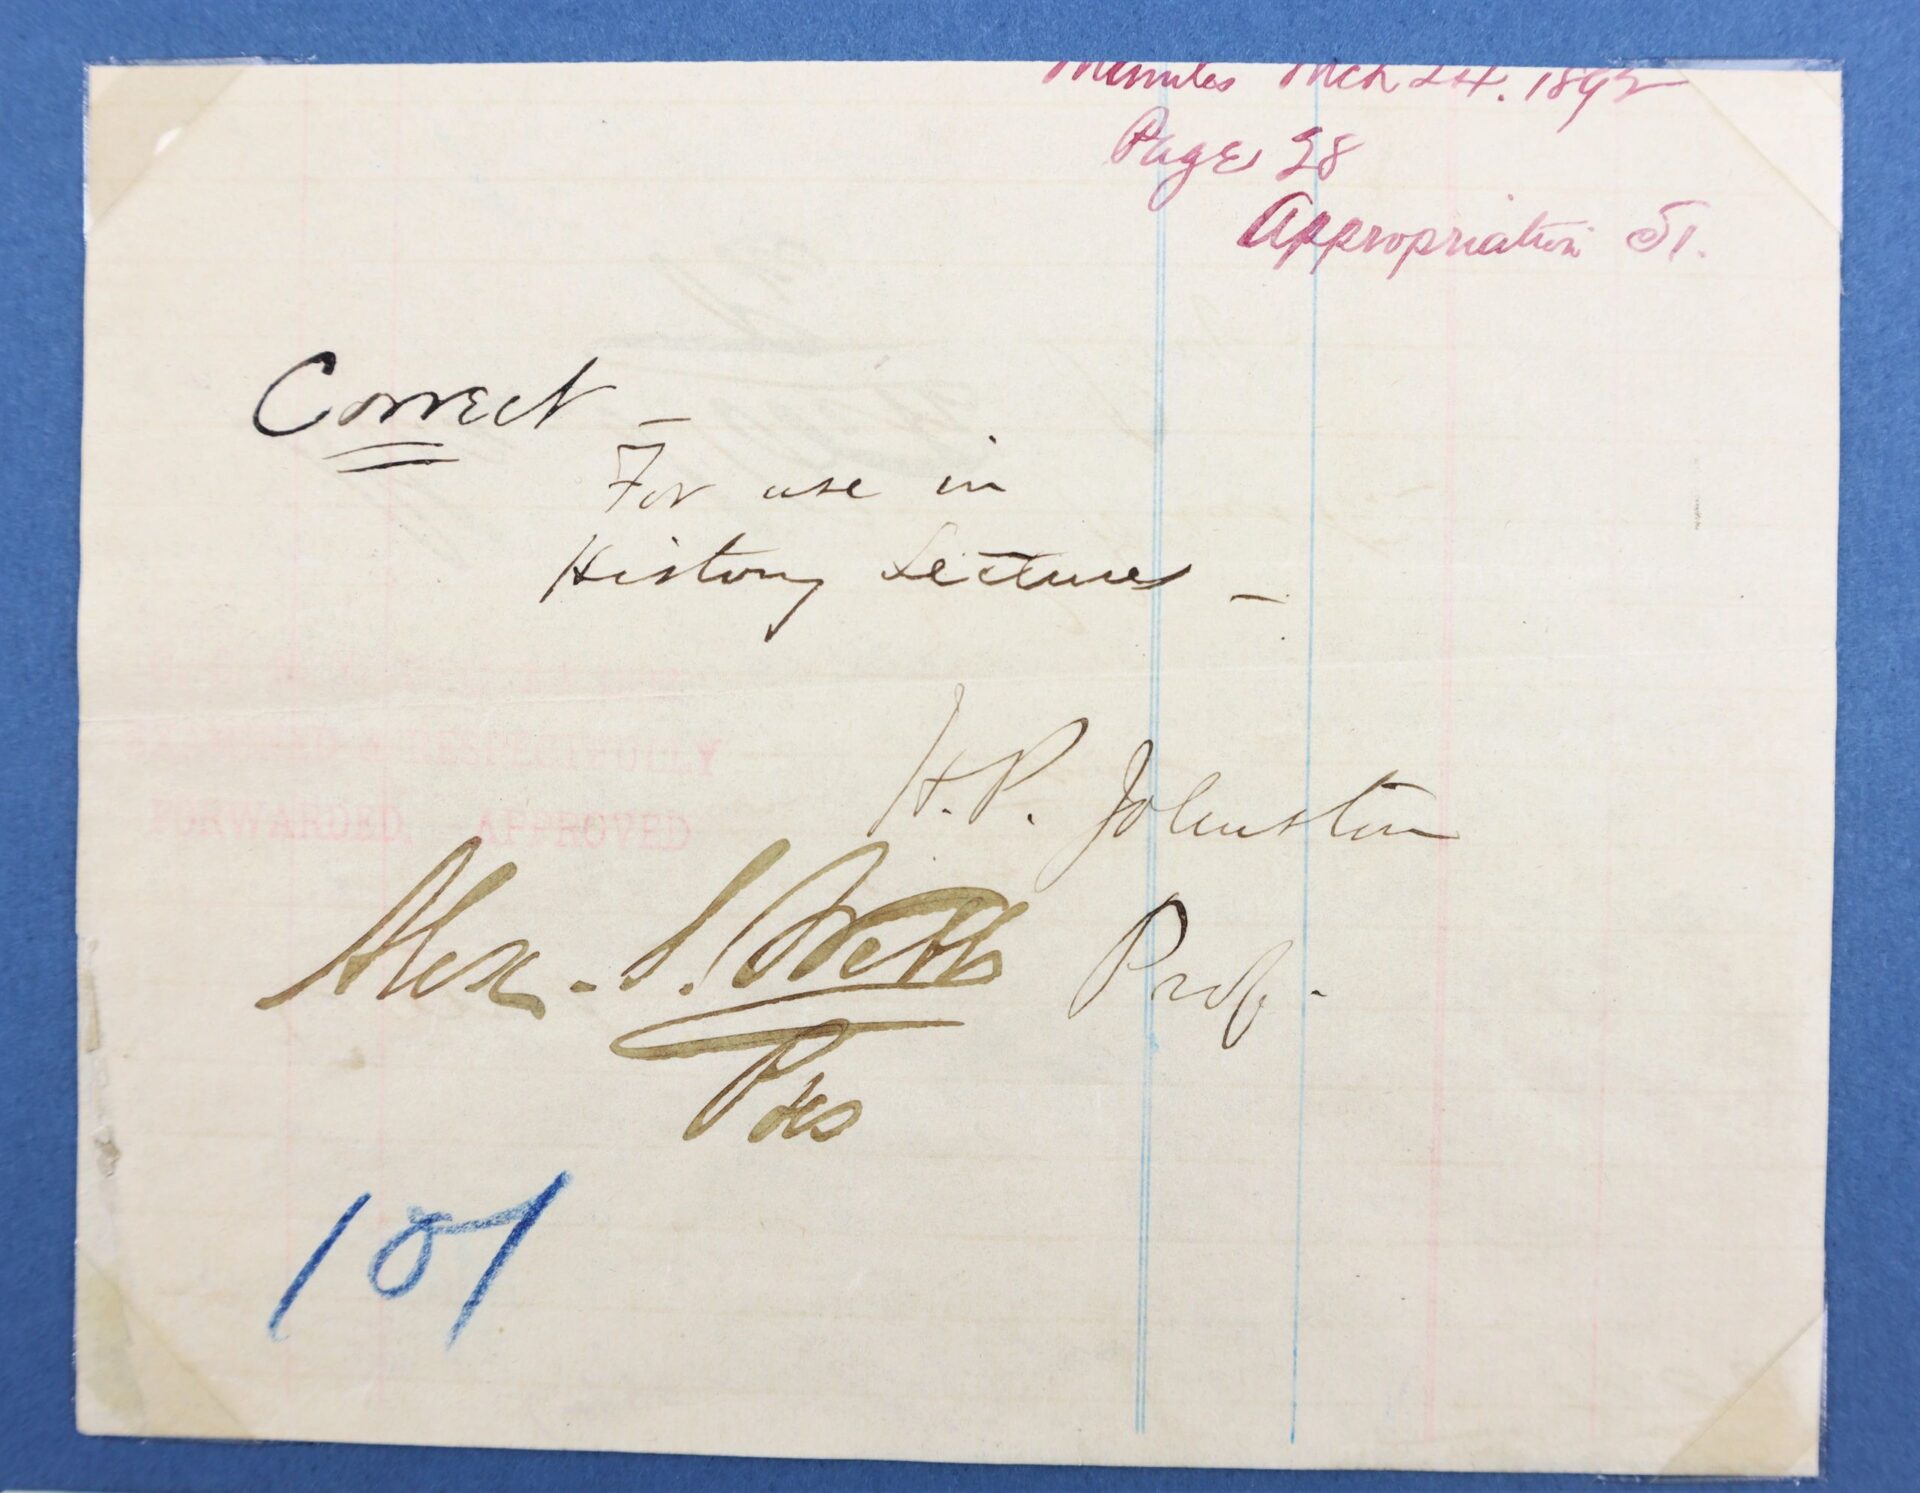 Minutes Mch 24. 1892
Page 28
Appropriation
Correct –
For use in
History Lectures –
EXAMINED & RESPECTFULLY
FORWARDED. APPROVED
H. P. Johnston
Alex. S. Webb
Prof.
Pres
107